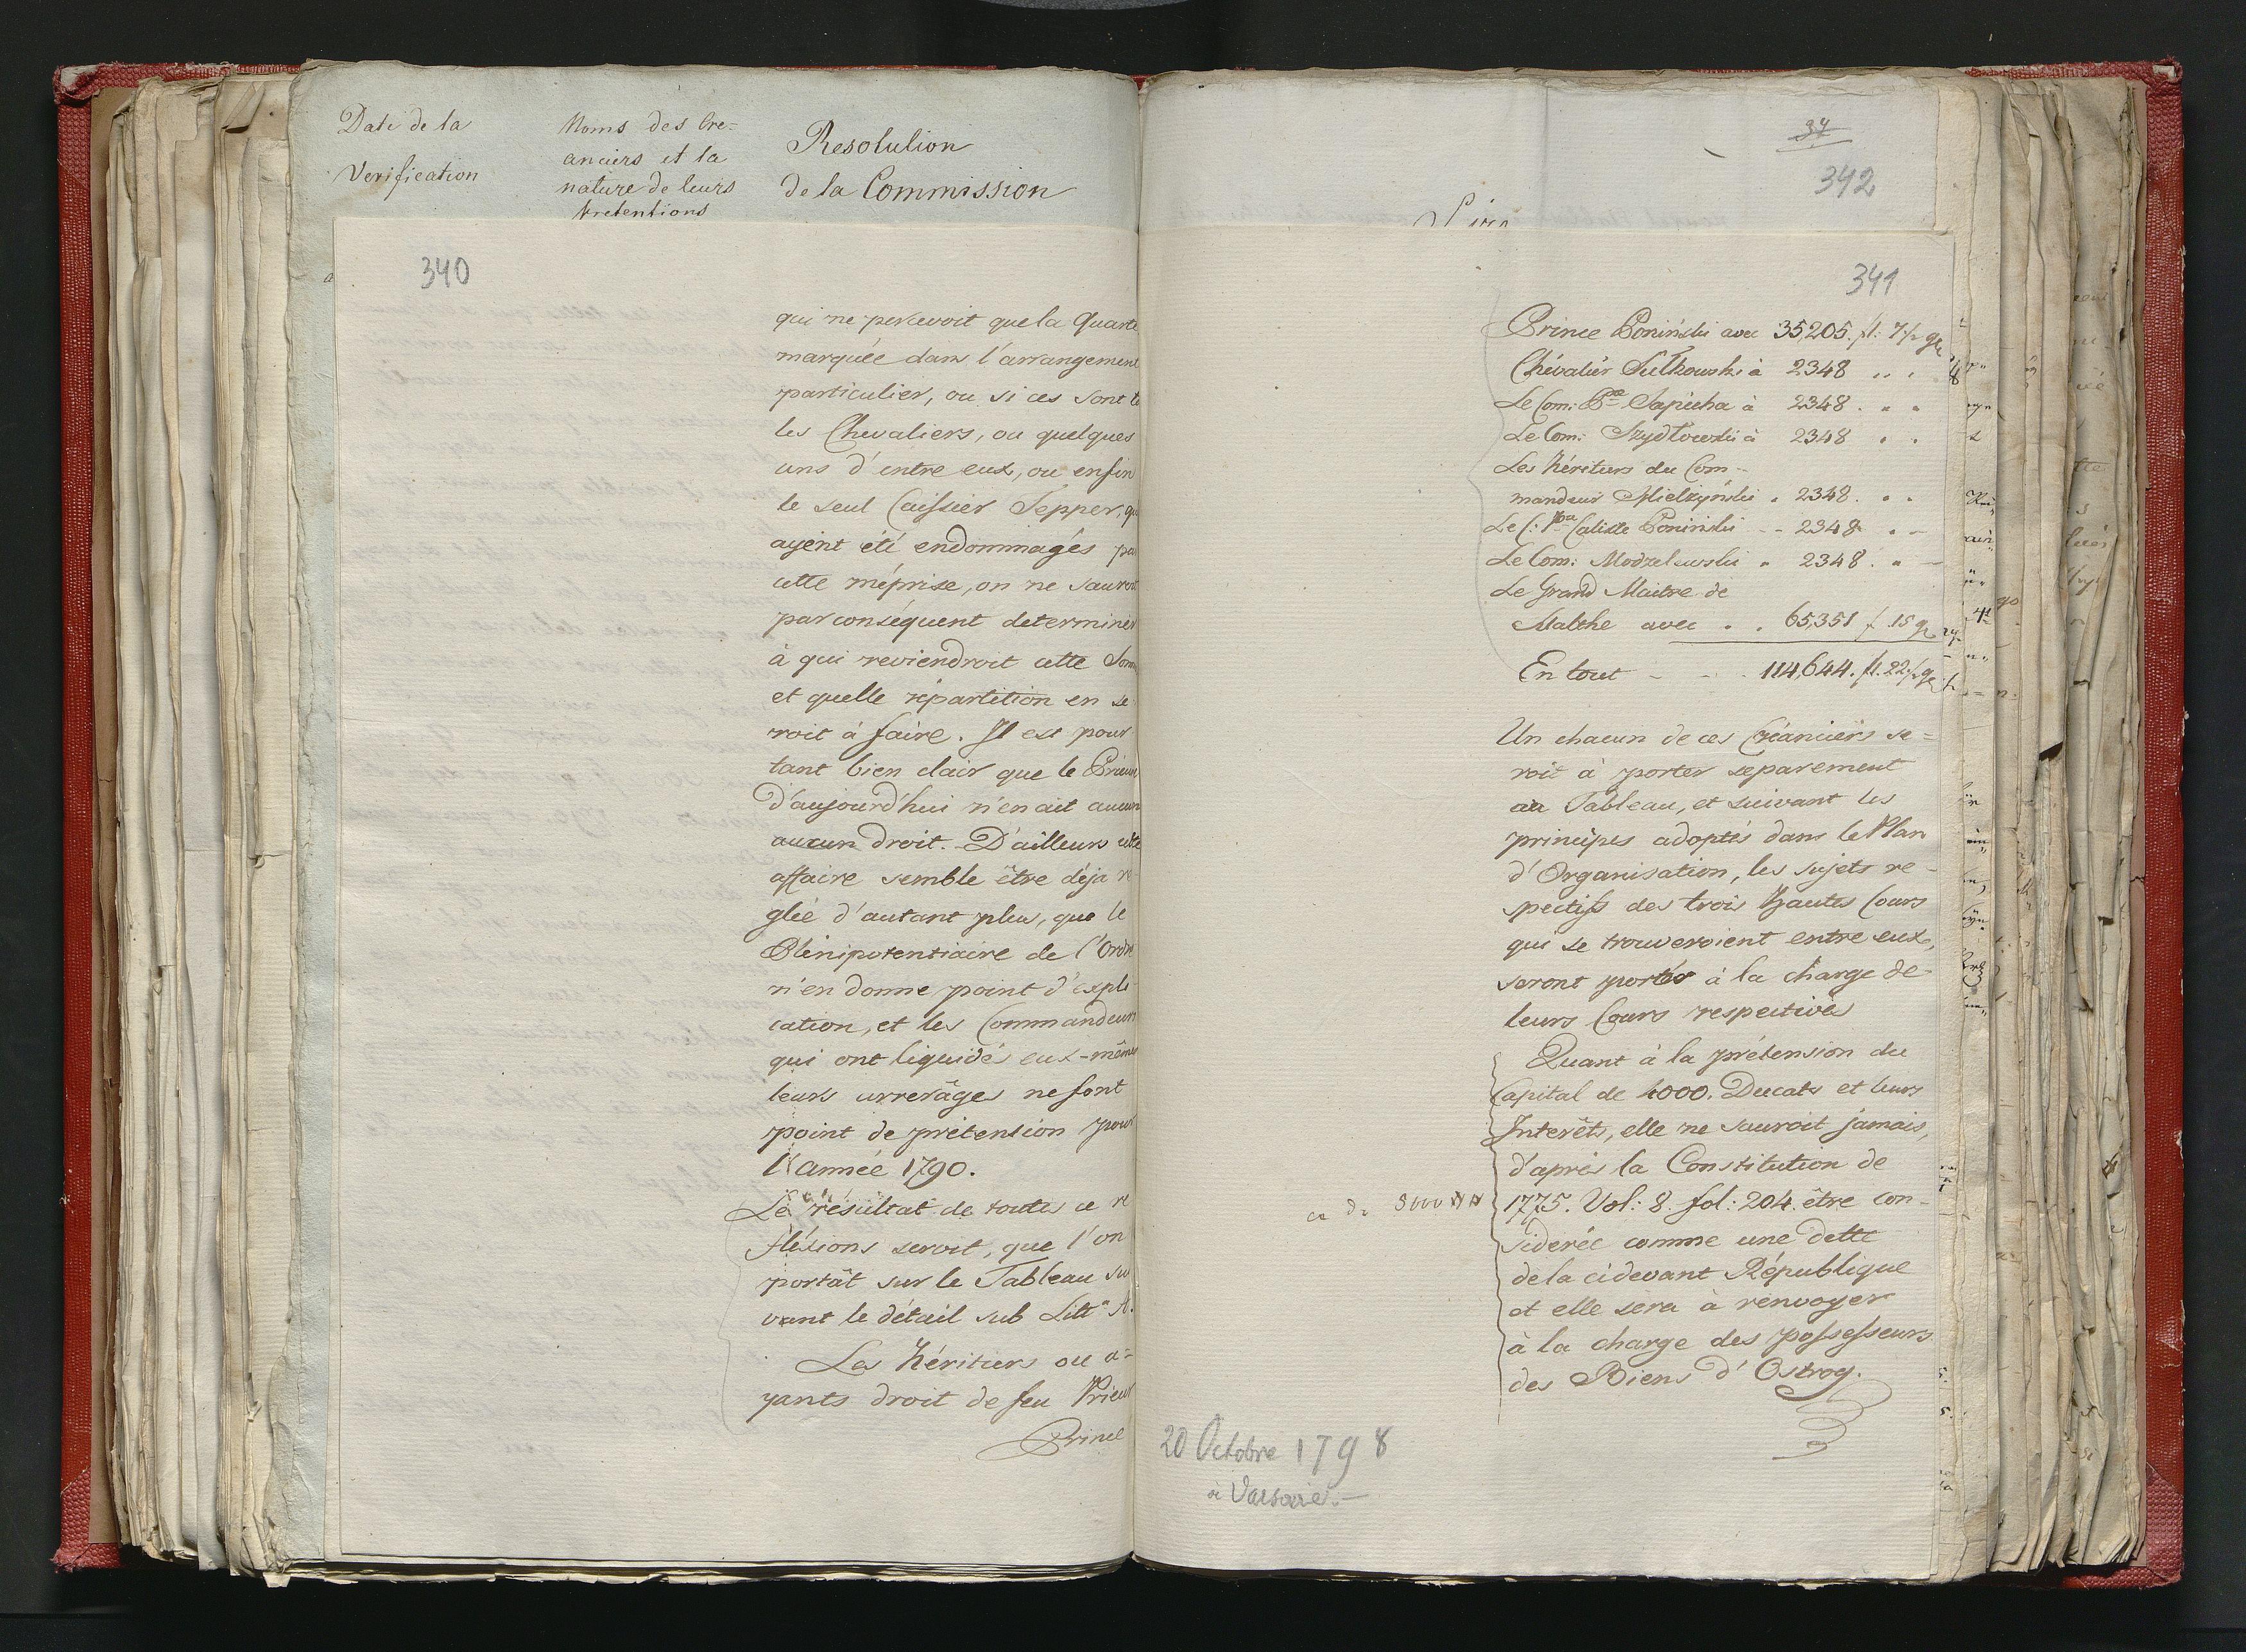 Date de la
Verification
Noms des Cre=
anciers et la
nature de leurs
Pretentions
Resolution
de la Commission
340
qui ne percevoit que la Quarte
marquée dans l'arrangement
particulier, ou si ces sont
les Chevaliers, ou quelques
uns d'entre eux, ou enfin
le seul Caissier Tepper,
ayent été endommagés
cette méprise, on ne sauroit
par conséquent determiner
à qui reviendroit cette
et quelle répartition en se
roit à faire. Il est pour
tant bien clair que le Prieur
d'aujourd'hui n'en ait aucun
aucun droit. D'ailleurs cette
affaire semble être déja re-
glée d'autant plus, que le
Plénipotentiaire de l'Ordre
n'en donne point d'expli-
cation, et les Commandeurs
qui ont liquidés eux-mêmes
leurs arrerâges ne font
point de prétension pour
l'année 1790.
Le résultat de toutes ce re
fléxions seroit, que l'on
portât sur le Tableau sui
vant le détail sub Litt: A.
Les Héritiers ou a=
yants droit de feu Prieur
Prince
34
342
341
Prince Poniński avec 35,205. fl: 7½ gr
Chévalier Sułkowski à 2348 " "
Le Com: Pce Sapieha à 2348. " "
Le Com: Szydłowski à 2348 " "
Les Héritiers du Com-
mandeur Mielzyński " 2348. " "
Le C: Pce Caliste Poniński - - 2348 " -
Le Com: Modzelewski " 2348. " -
Le Grand Maitre de
Malthe avec . . 65,351 f. 15 gr
En tout - - . 114,644. fl. 22½ gr
Un chacun de ces Créanciers se=
roit à porter separement
au Tableau, et suivant les
principes adoptés dans le Plan
d'Organisation, les sujets re-
spectifs des trois Hautes Cours
qui se trouveroient entre eux,
seront portés à la charge de
leurs Cours respectives
Quant à la prétension du
Capital de 4000. Ducats et leurs
Interêts, elle ne sauroit jamais,
d'après la Constitution de
1775. Vol: 8. fol: 204. être con-
siderée comme une dette
de la cidevant République
et elle sera à renvoyer
à la charge des possesseurs
des Biens d'Ostrog.
20 Octobre 1798
à Varsovie.-